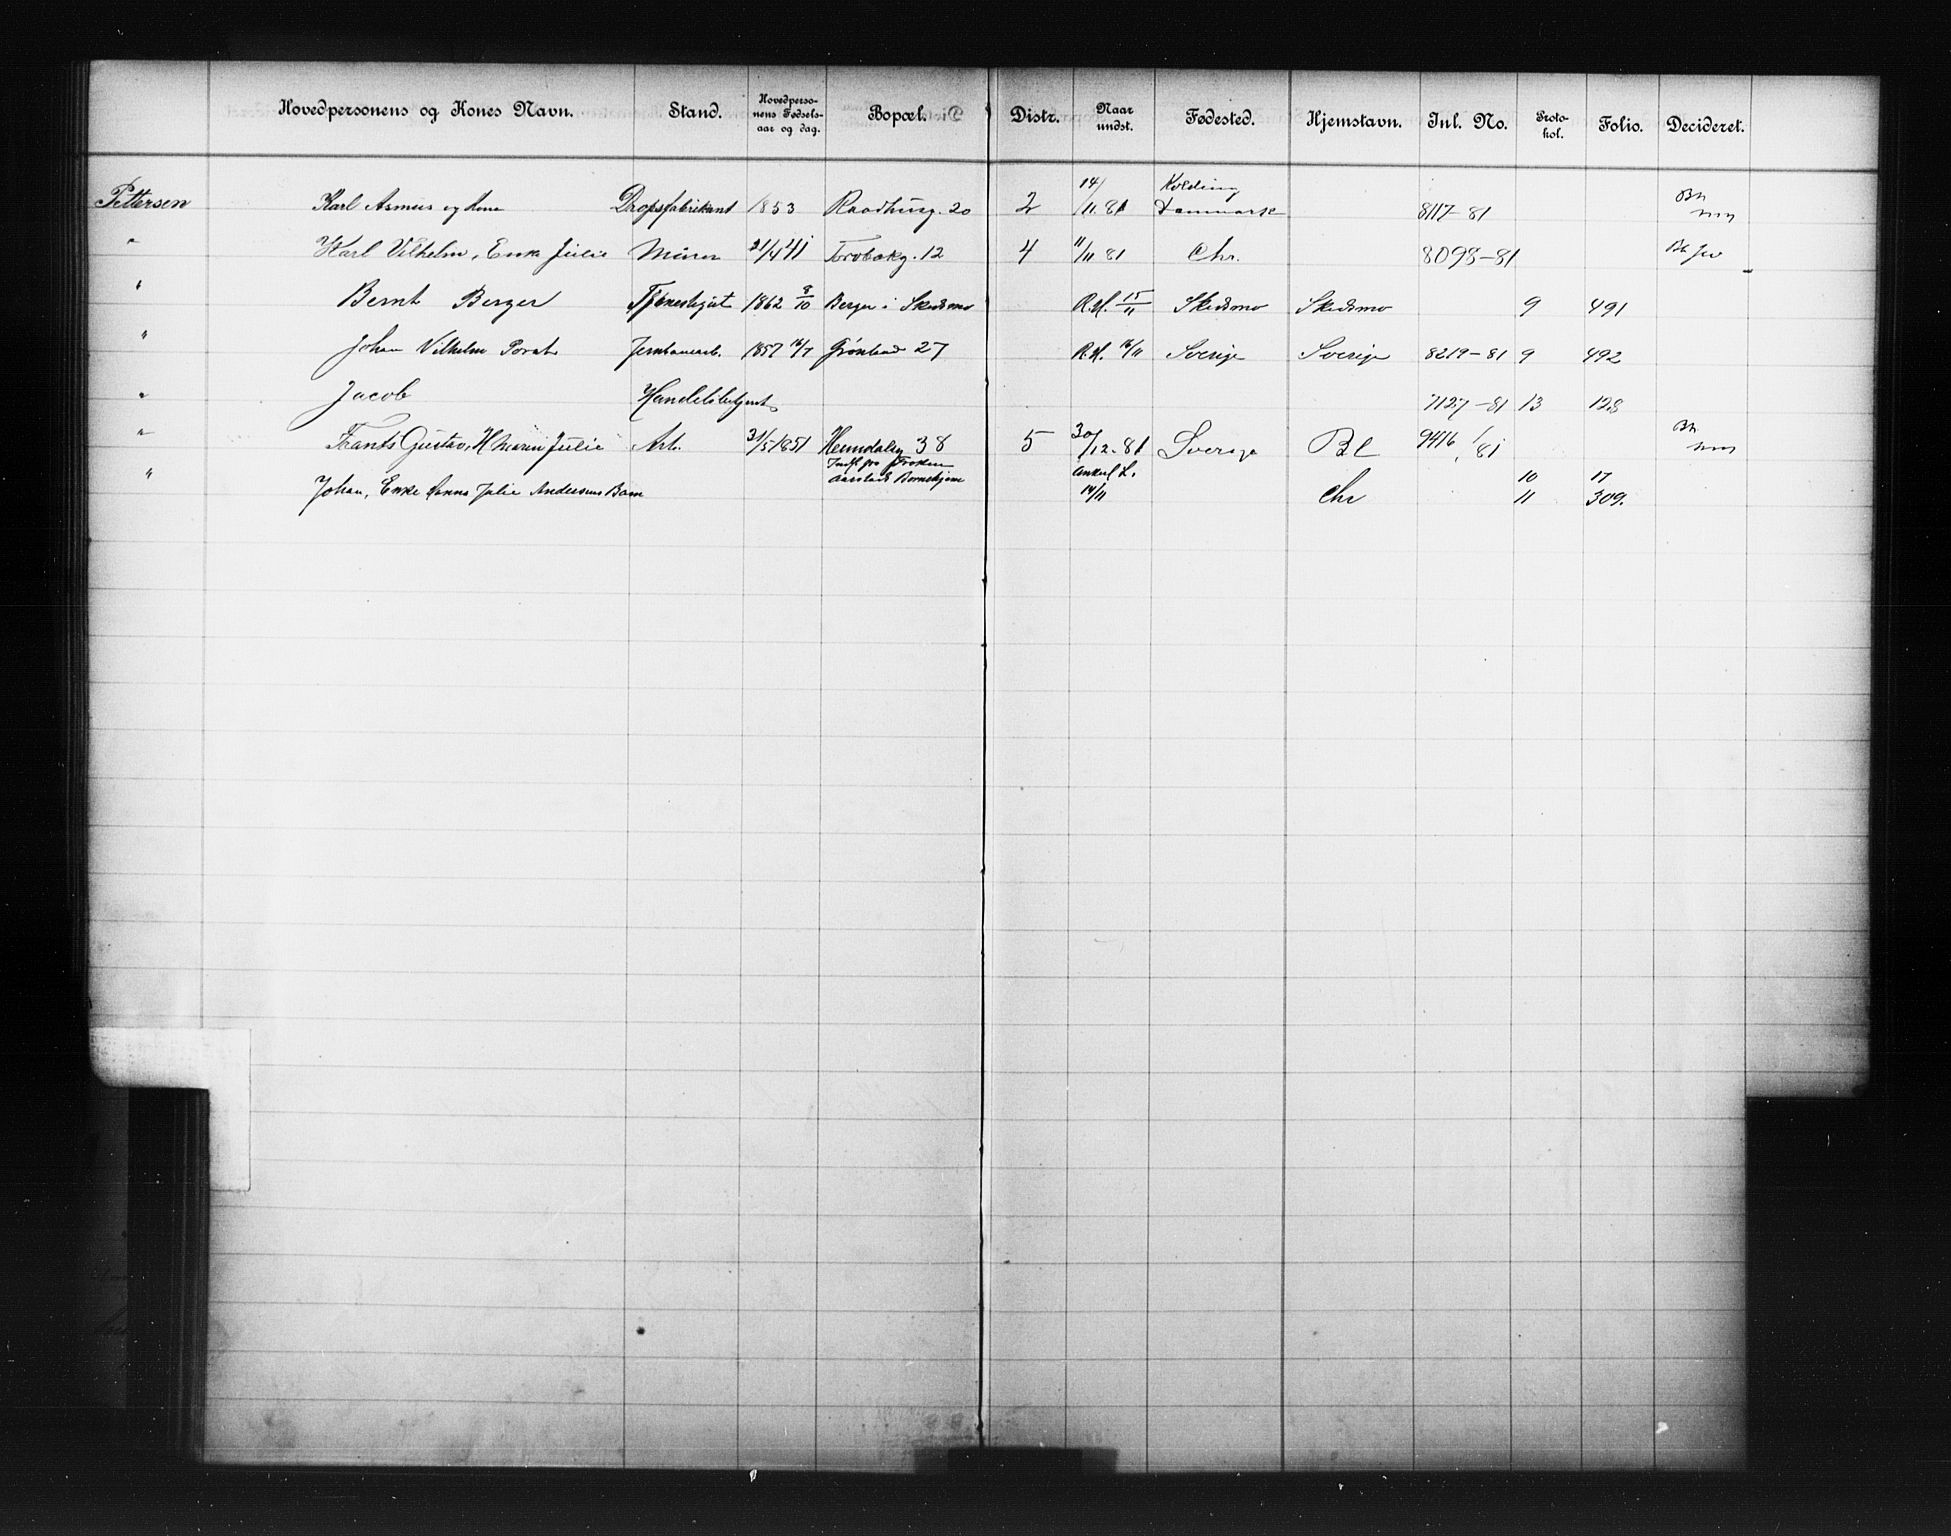 Hovedpersonens og Kones Navn. Stand. Hovedpersonens Fødselsaar og dag. Bopæl. Distr. Naar undst. Fødested. Hjemstavn. Inl. No. Protokol. Folio. Decideret.
Pettersen Karl Asmus og Kone Dropsfabrikant 1853 Raadhusg. 20 2 14/11.81 Kolding Danmark 8117-81 Bh
" Karl Vilhelm, Enke Julie Murer 21/4 41 Torvbakg. 12 4 11/11 81 Chr. 8098-81
" Bernt Berger Tjenestegut 1862 8/10 Berger i Skedsmo R.H. 15/11 Skedsmo Skedsmo 9 491
" Johan Vilhelm Jernbanearb. 1857 16/7 Grønland 27 R.H. 16/11 Sverige Sverige 8219-81 9 492
" Jacob Handelsbetjent 7127-81 13 128
" Frants Gustav, H Maren Julie Arb. 31/5 1851 Heimdalsg 38 5 30/12.81 Sverige Bl 9416/81 Bh
" Johan, Enke Anna Julie Andersens Barn Indfl fra Frøken Aarstads Børnehjem 14/11 Chr 10 17
11 309.